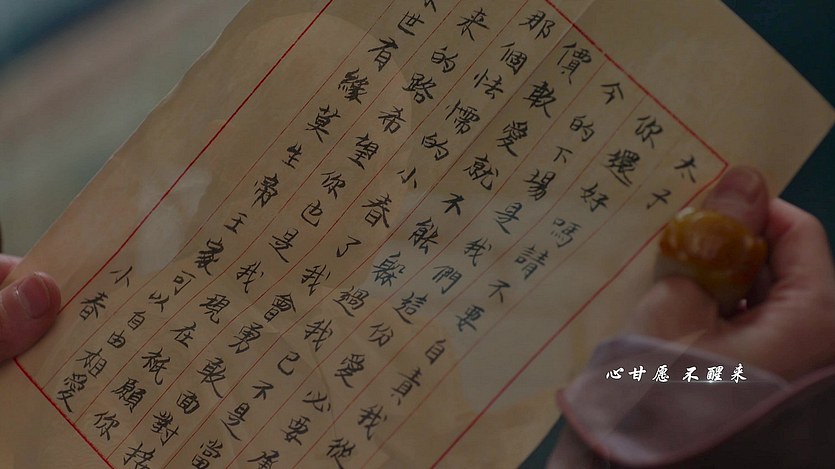 太子
你還好嗎請不要自責我從
今的下場是我們這份愛必要
價敢愛就不能躲過我已不是當
那個怯懦的小春了我會勇敢面對接
来的路希望你也是我現在祇願你
世有緣莫生帝王家可以自由相愛
小春
心甘愿 不醒来